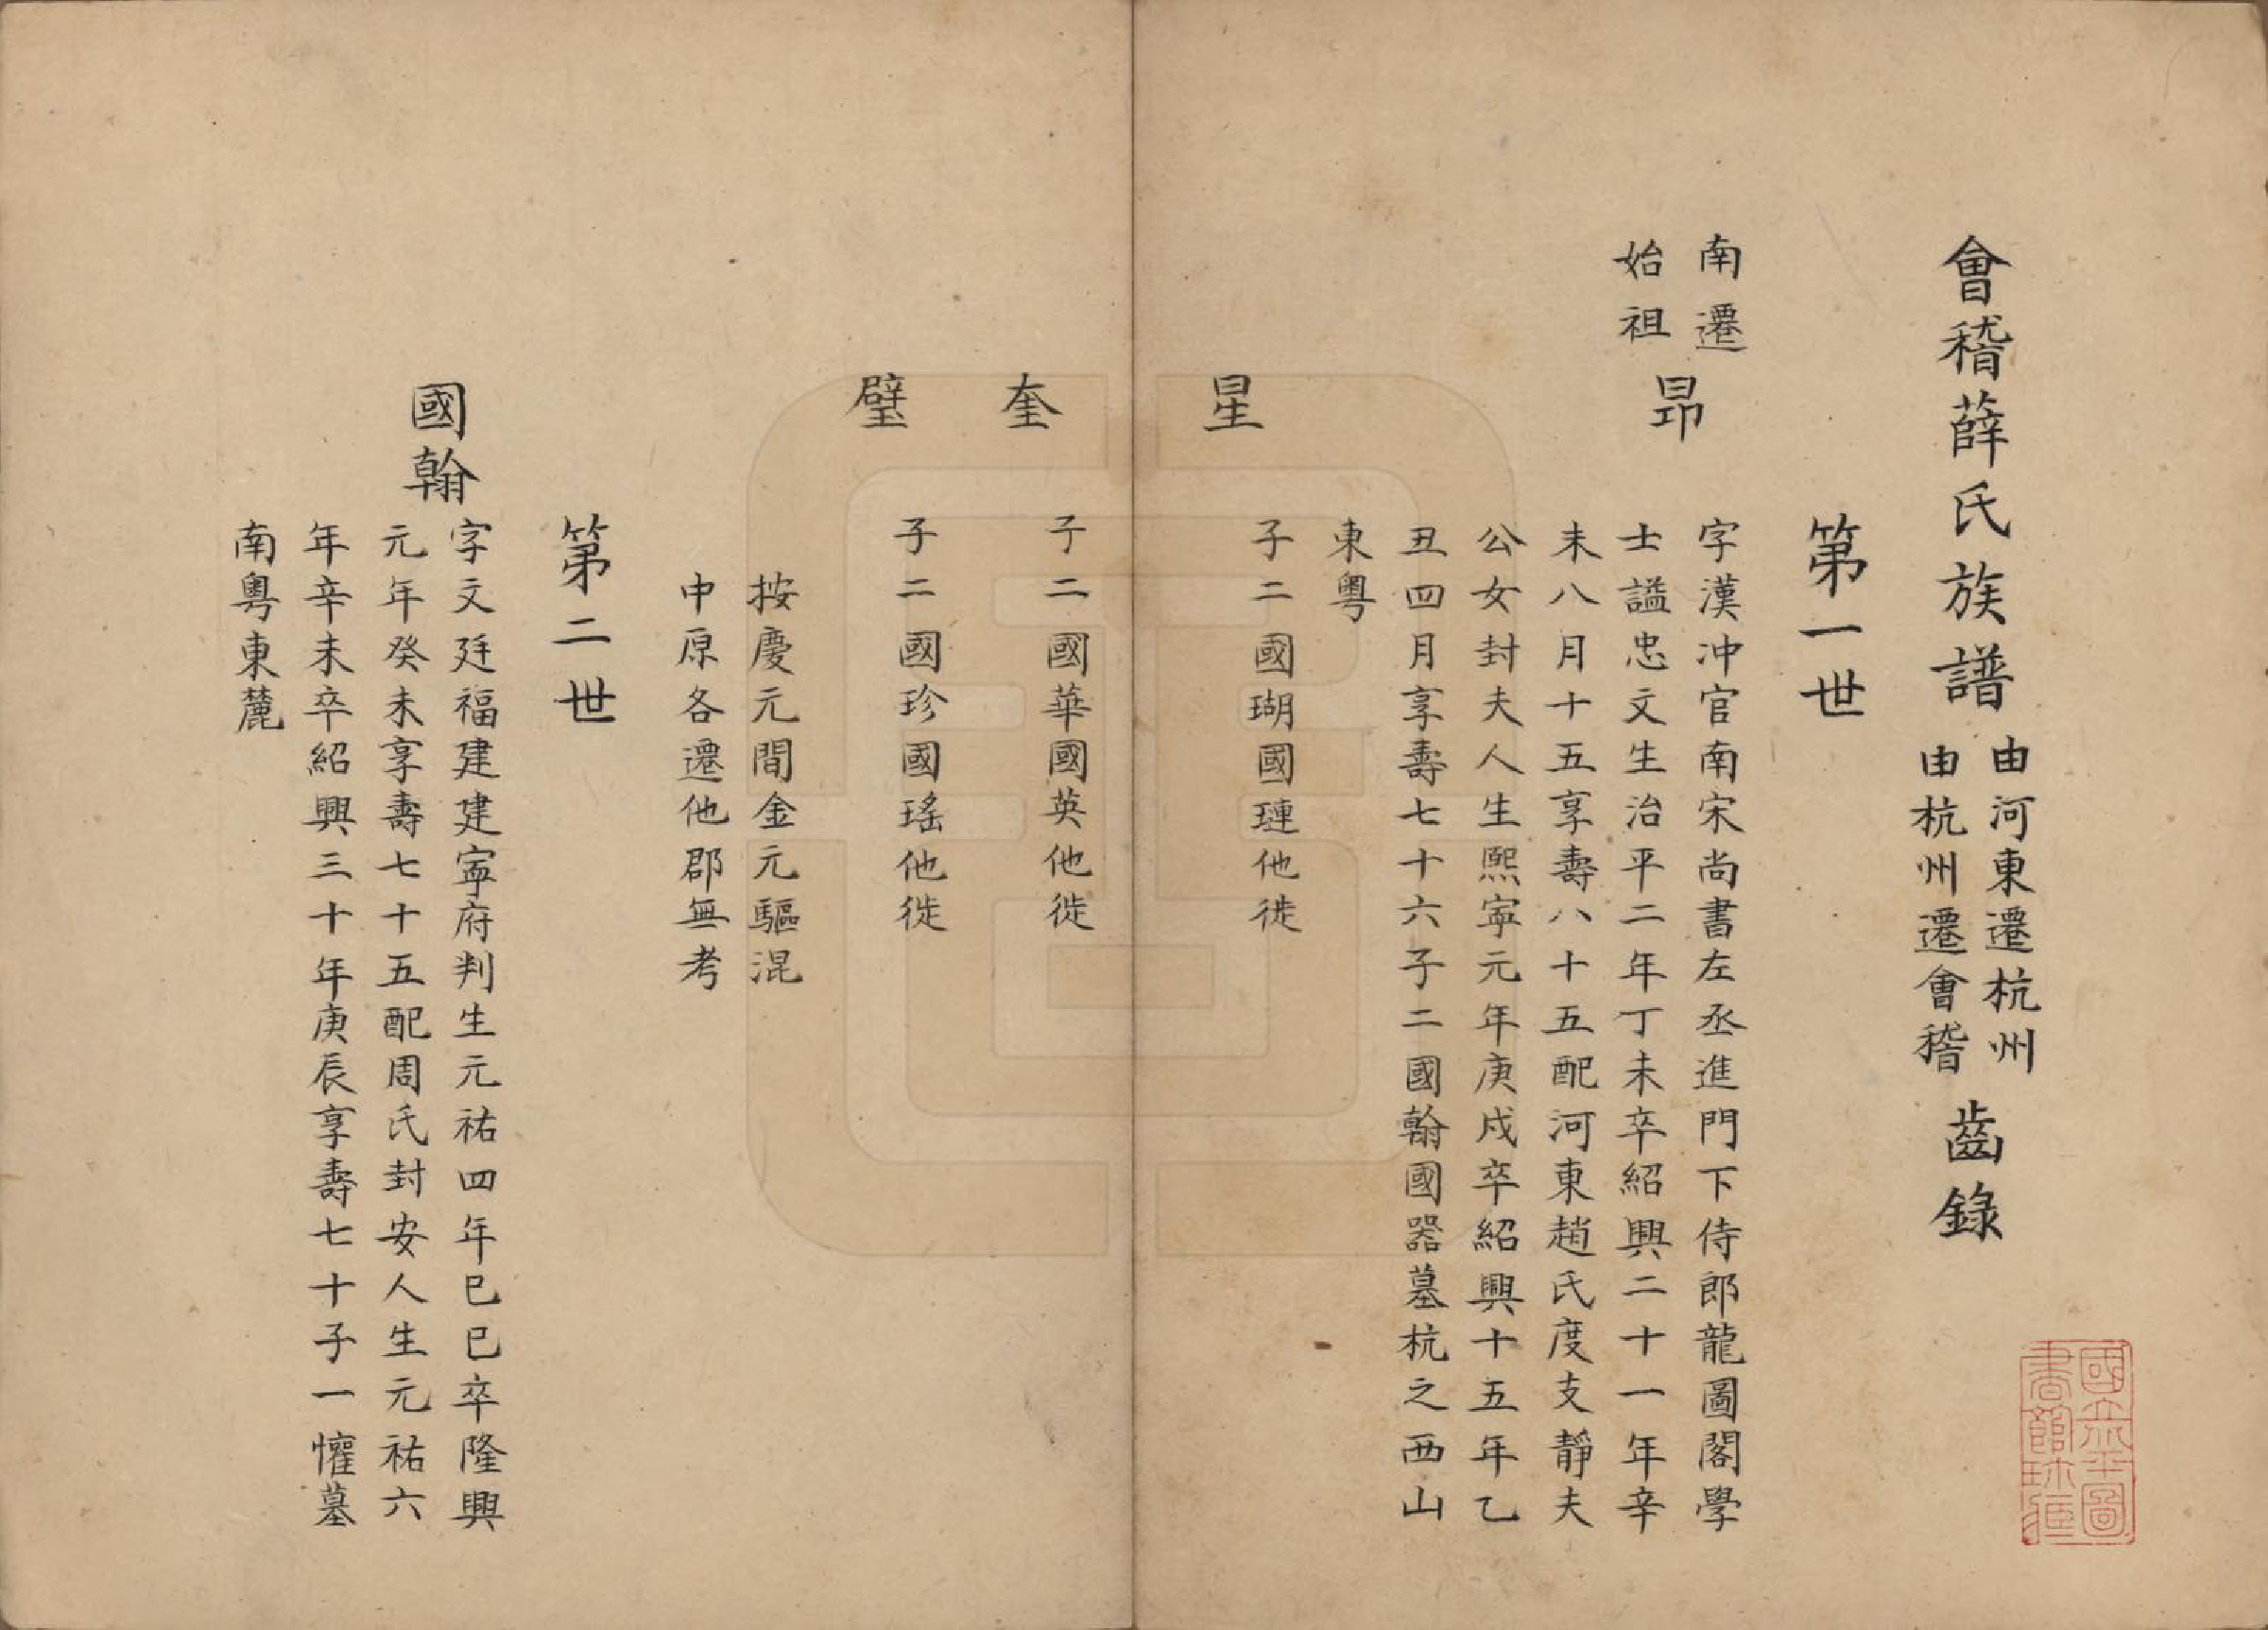 會稽薛氏族譜
由河東遷杭州
由杭州遷會稽
齒錄
第一世
南遷
始祖
昴
字漢冲官南宋尚書左丞進門下侍郎龍圖閣學
士謚忠文生治平二年丁未卒紹興二十一年辛
未八月十五享壽八十五配河東趙氏度支靜夫
公女封夫人生熙寧元年庚戍卒紹興十五年乙
丑四月享壽七十六子二國翰國器墓杭之西山
東粵
星
子二國瑚國璉他徙
奎
子二國華國英他徙
璧
子二國珍國瑤他徙
按慶元間金元驅混
中原各遷他郡無考
第二世
國翰
字文廷福建建寧府判生元祐四年巳巳卒隆興
元年癸未享壽七十五配周氏封安人生元祐六
年辛未卒紹興三十年庚辰享壽七十子一懽墓
南粵東麓
國立圖
書館珍藏